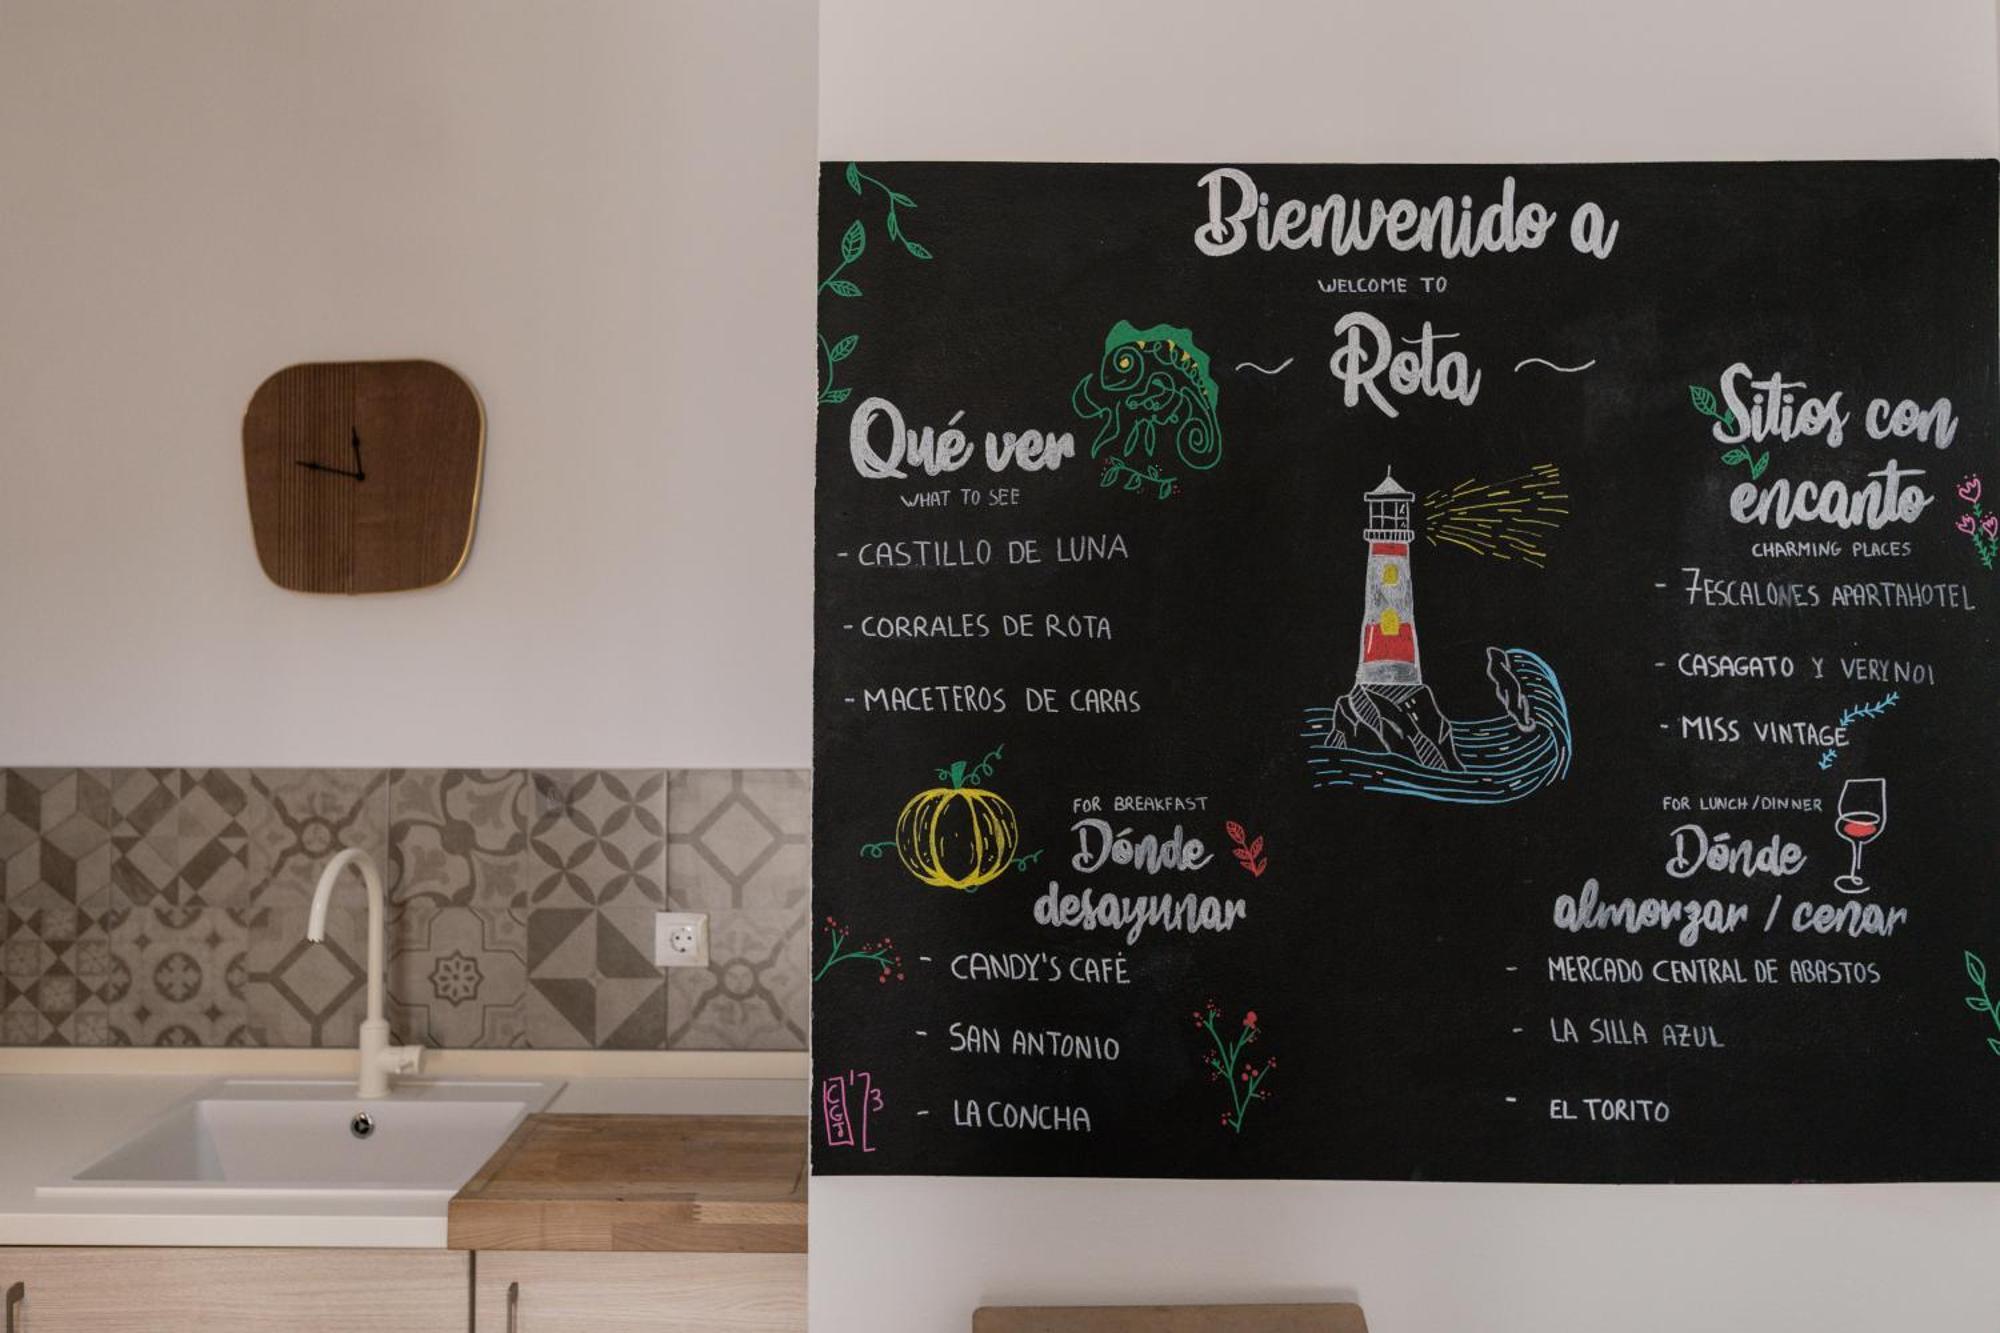 Bienvenido a
WELCOME TO
Rota
Qué ver
WHAT TO SEE
- CASTILLO DE LUNA
- CORRALES DE ROTA
- MACETEROS DE CARAS
Sitios con
encanto
CHARMING PLACES
- 7ESCALONES APARTAHOTEL
- CASAGATO Y VERYNOI
- MISS VINTAGE
FOR BREAKFAST
Dónde
desayunar
- CANDY'S CAFÉ
- SAN ANTONIO
- LA CONCHA
FOR LUNCH/DINNER
Dónde
almorzar / cenar
- MERCADO CENTRAL DE ABASTOS
- LA SILLA AZUL
- EL TORITO